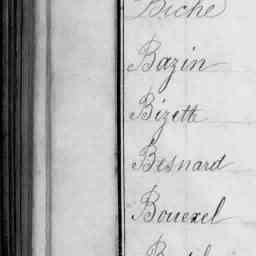 Biche
Bazin
Bizette
Besnard
Bouexel